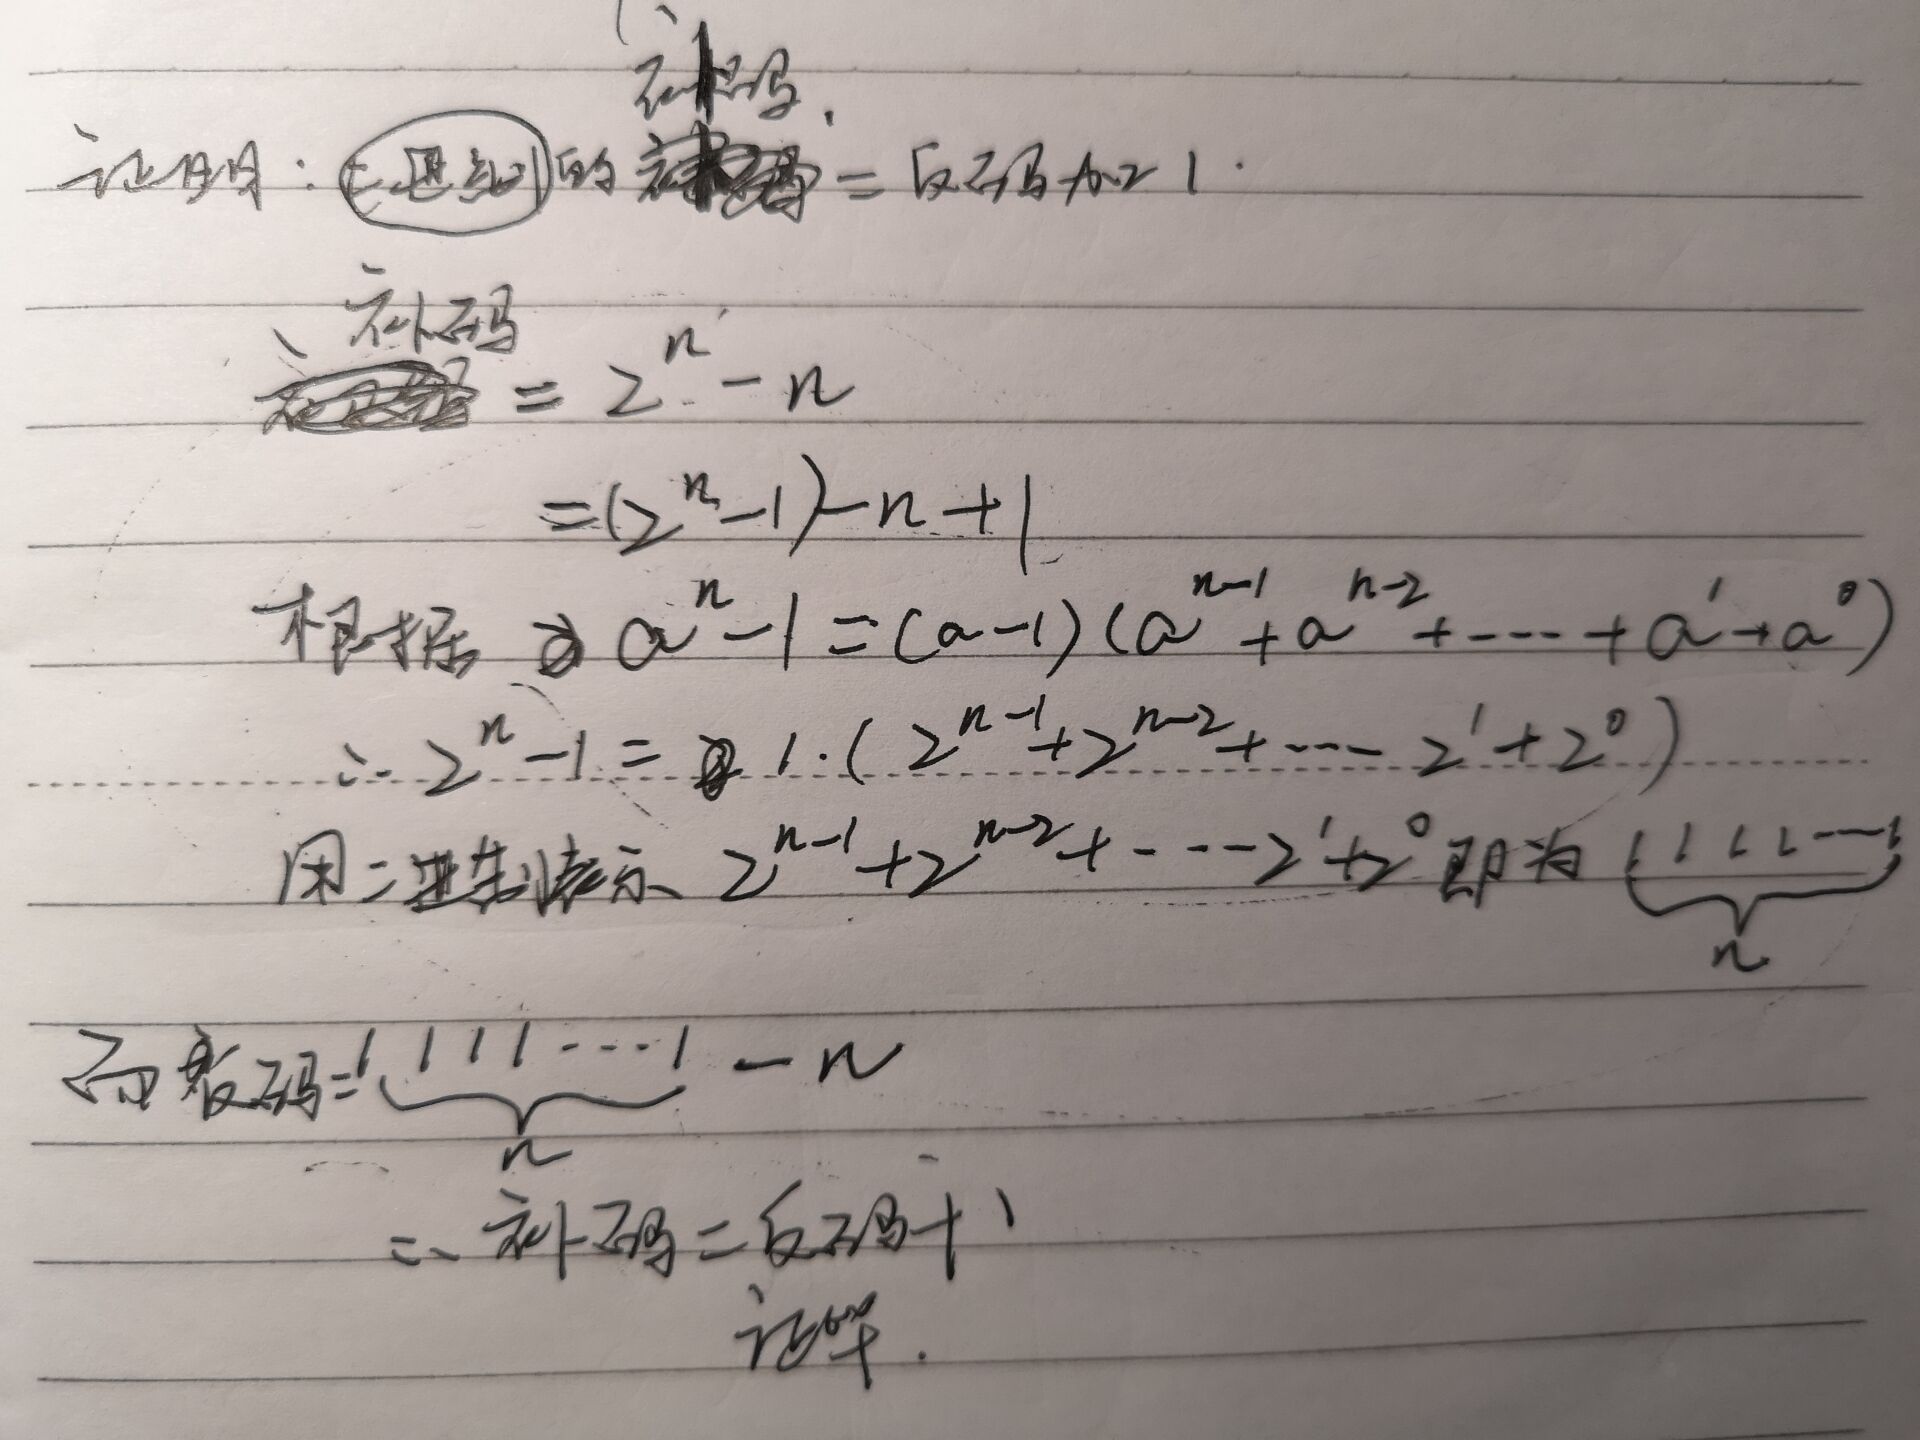 补码
证明:二进制的=反码加1.
补码
=2ⁿ-n
=(2ⁿ-1)-n+1
根据 aⁿ-1=(a-1)(aⁿ⁻¹+aⁿ⁻²+----+a¹+a⁰)
∴2ⁿ-1=1·(2ⁿ⁻¹+2ⁿ⁻²+---2¹+2⁰)
用二进制表示2ⁿ⁻¹+2ⁿ⁻²+----2¹+2⁰即为1111---1
n
而反码=1111----1-n
n
∴补码=反码+1
证毕.